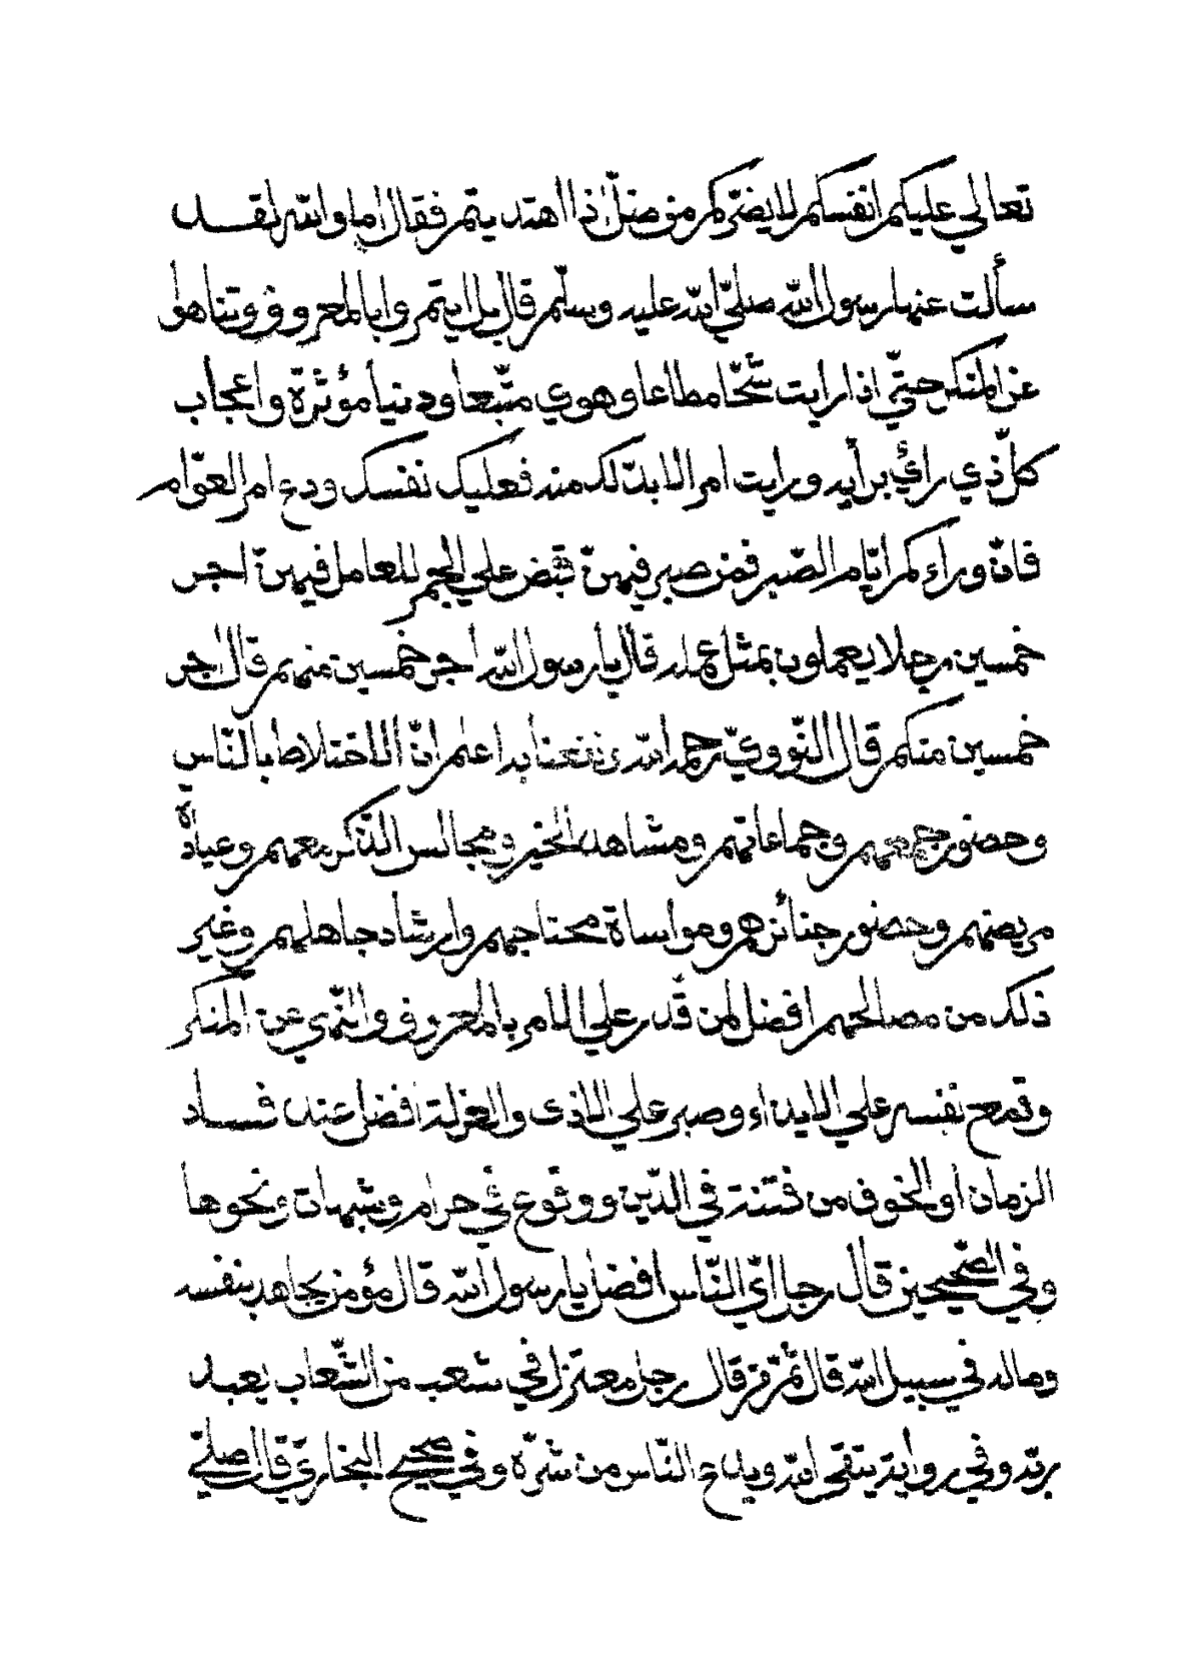 تعالي عليكم انفسكم لا يضرّكم من ضلّ اذا اهتديتم فقال اما والله لقد
سألت عنها رسول الله صليّ الله عليه وسلّم قال بل ايتمروا بالمعروف وتناهوا
عن المنكر حتيّ اذا رايت شحّا مطاعا وهوي متّبعا ودنيا مؤثرة واعجاب
كلّ ذي رائٍ برأيه ورايت امرا لا بدّ لك منه فعليك نفسك ودع امر العوّام
فانّ وراءكم ايّام الصّبر فمن صبر فيهنّ قبض علي الجمر للعامل فيهنّ اجر
خمسين رجلا يعملون بمثل عمله قال يا رسول الله أجر خمسين منهم قال اجر
خمسين منكم قال النّوويّ رحمه الله ونفعنا به اعلم انّ الاختلاط بالنّاس
وحضور جمعهم وجماعاتهم ومشاهد الخير ومجالس الذّكر معهم وعيادة
مريضهم وحضور جنائزهم ومواساة محتاجهم وارشاد جاهلهم وغير
ذلك من مصالحهم افضل لمن قدر علي الامر بالمعروف والنّهي عن المنكر
وقمع نفسه علي الايذاء وصبر علي الاذى والعزلة افضل عند فساد
الزمان او الخوف من فتنة في الدّين ووقوع في حرام وشبهات ونحوها
وفي الصّحيحين قال رجل ايّ النّاس افضل يا رسول الله قال مؤمن يجاهد بنفسه
وماله في سبيل الله قال ثمّ من قال رجل معتزل في شعب من الشّعاب يعبد
ربّه وفي رواية يتقى الله ويدع النّاس من شرّه وفي صحيح البخاريّ قال صليّ